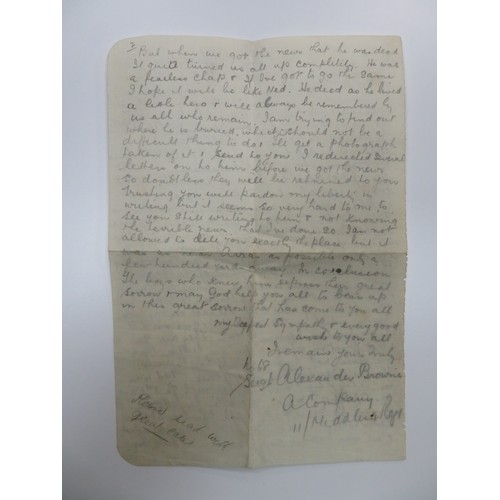 3
But when we got the news that he was dead
it quite turned us all up completely. He was
a fearless chap, & if I've got to go the same
I hope it will be like Ned. He died as he lived
a little hero & will always be remembered by
us all who remain. I am trying to find out
where he is buried, which should not be a
difficult thing to do, I'll get a photograph
taken of it & send to you. I redirected several
letters on to him before we got the news
so doubtless they will be returned to you
trusting you will pardon my liberty in
writing but it seems so very hard to me to
see you still writing to him & not knowing
the terrible news, that is done so. I am not
allowed to tell you exactly the place but it
was as near Arras as possible only a
few hundred yards away. In conclusion
The boys who knew him express their great
sorrow & may God help you all to bear up
in this great sorrow that has come to you all
My deepest sympathy & every good
wish to you all
I remain yours truly
Sergt Alexander Browne
A Company
11/Middlesex Regt